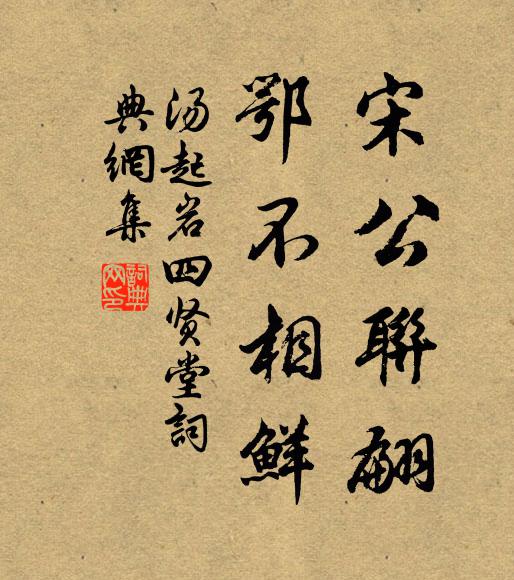 宋公聯翩
鄂不相鮮
汤起岩四贤堂詞
典網集
詞典網印